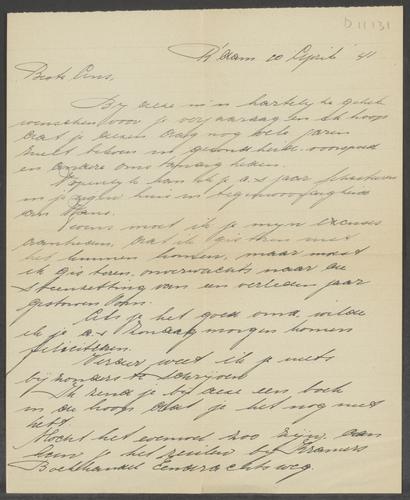 D 11131
R'dam 20 April '41
Beste Ans,
By deze m'n hartelyke geluk
wenschen voor je verjaardag en ik hoop
dat je dezen dag nog vele jaren
moet beleven in gezondheid, voorspoed
en andere omstandigheden.
Hopenlyk kan ik je a.s jaar feliciteren
in je eigen huis in tegenwoordigheid
van Hans.
Tevens moet ik je myn excuses
aanbieden, dat ik gisteren niet
heb kunnen komen, maar moest
ik gisteren onverwachts naar de
steenzetting van een verleden jaar
gestorven Oom.
Als je het goed vind, wilde
ik je a.s Zondag morgen komen
feliciteren.
Verder weet ik je niets
byzonders te schryven
Ik zend je by deze een boek
in de hoop dat je het nog niet
hebt.
Mocht het evenwel zoo zyn, dan
kun je het ruilen by Kramers
Boekhandel Eendrachtsweg.